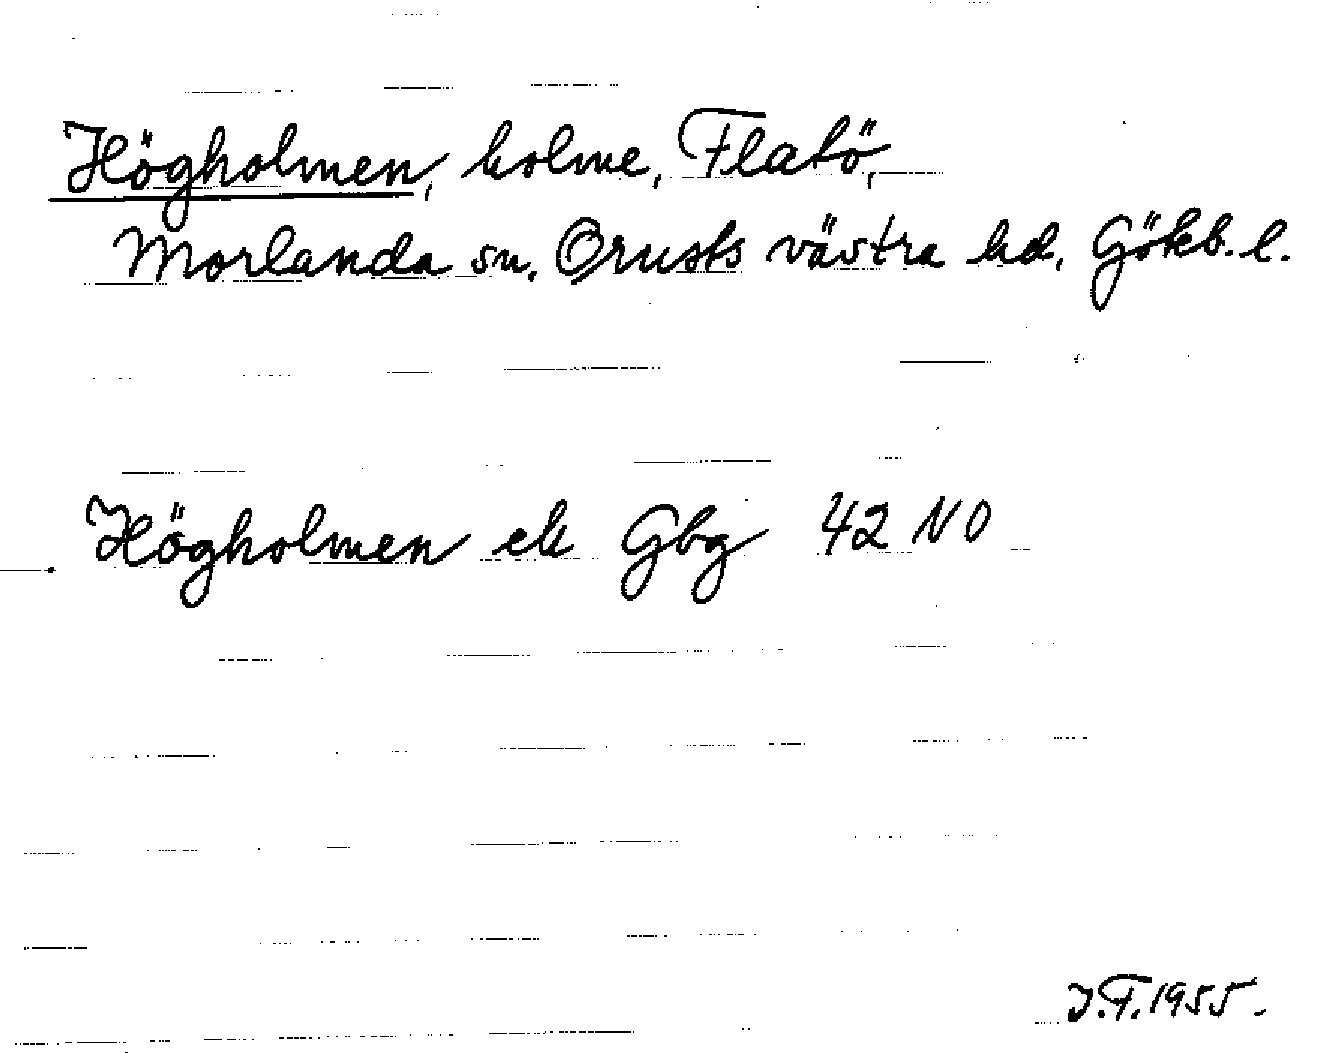 Högholmen, holme, Flatö,
Morlanda sn, Orusts västra hd, Gökb. l.
Högholmen ek Gbg 42 NO
J.F. 1955.